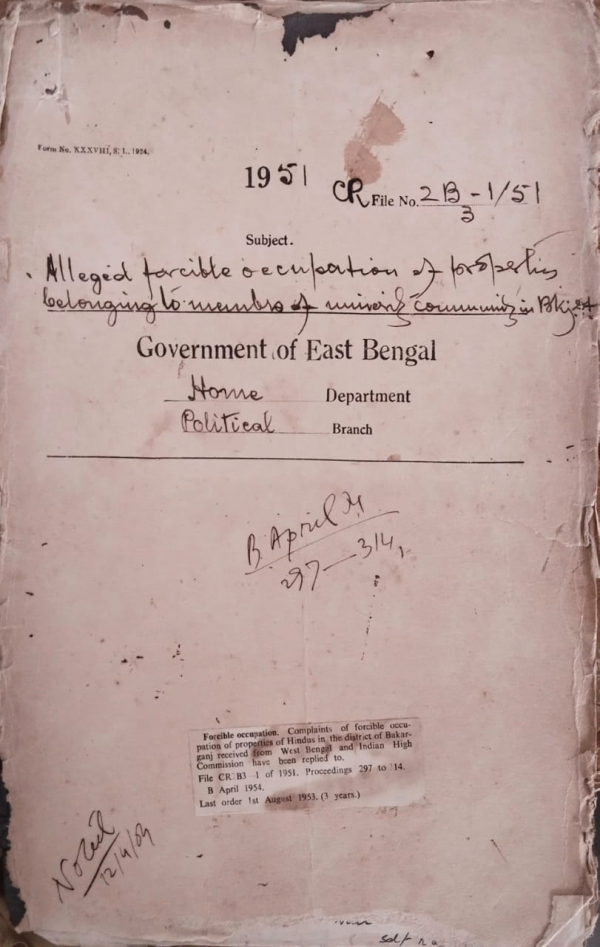 Form No. XXXVIII, S. I., 1954.
1951
CR File No. 2B-1/51
3
Subject.
Alleged forcible occupation of properties
belonging to members of minority community in Bkj. Dt
Government of East Bengal
Home Department
Political Branch
B. April 54
297—314,
Forcible occupation. Complaints of forcible occu-
pation of properties of Hindus in the district of Bakar-
ganj received from West Bengal and Indian High
Commission have been replied to.
File CR B3-1 of 1951. Proceedings 297 to 14.
B April 1954.
Last order 1st August 1953. (3 years.)
12/4/